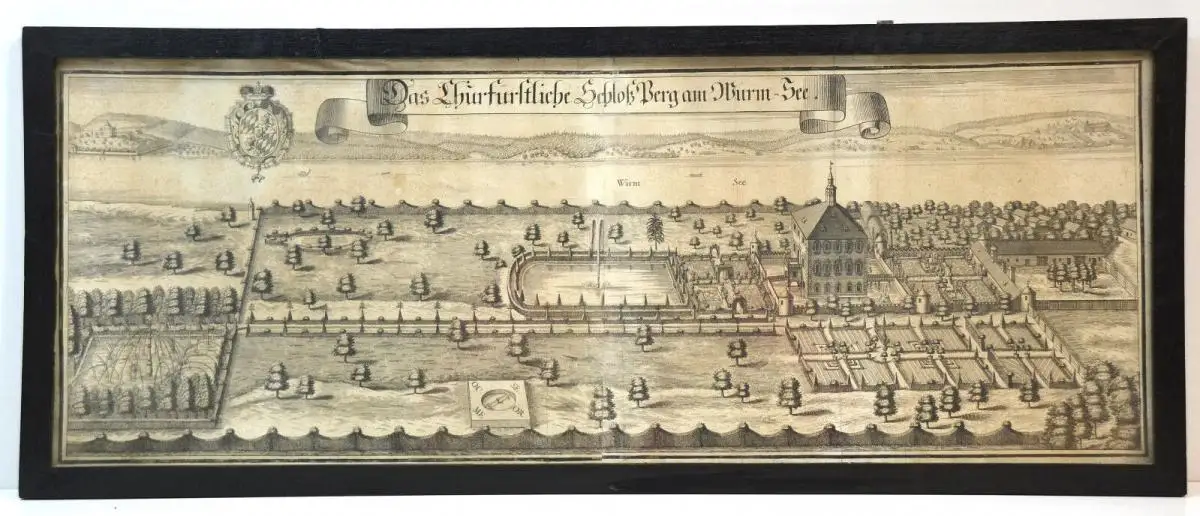 Das Churfürstliche Schloß Perg am Wurm-See.
Würm See
OC SE
ME OR